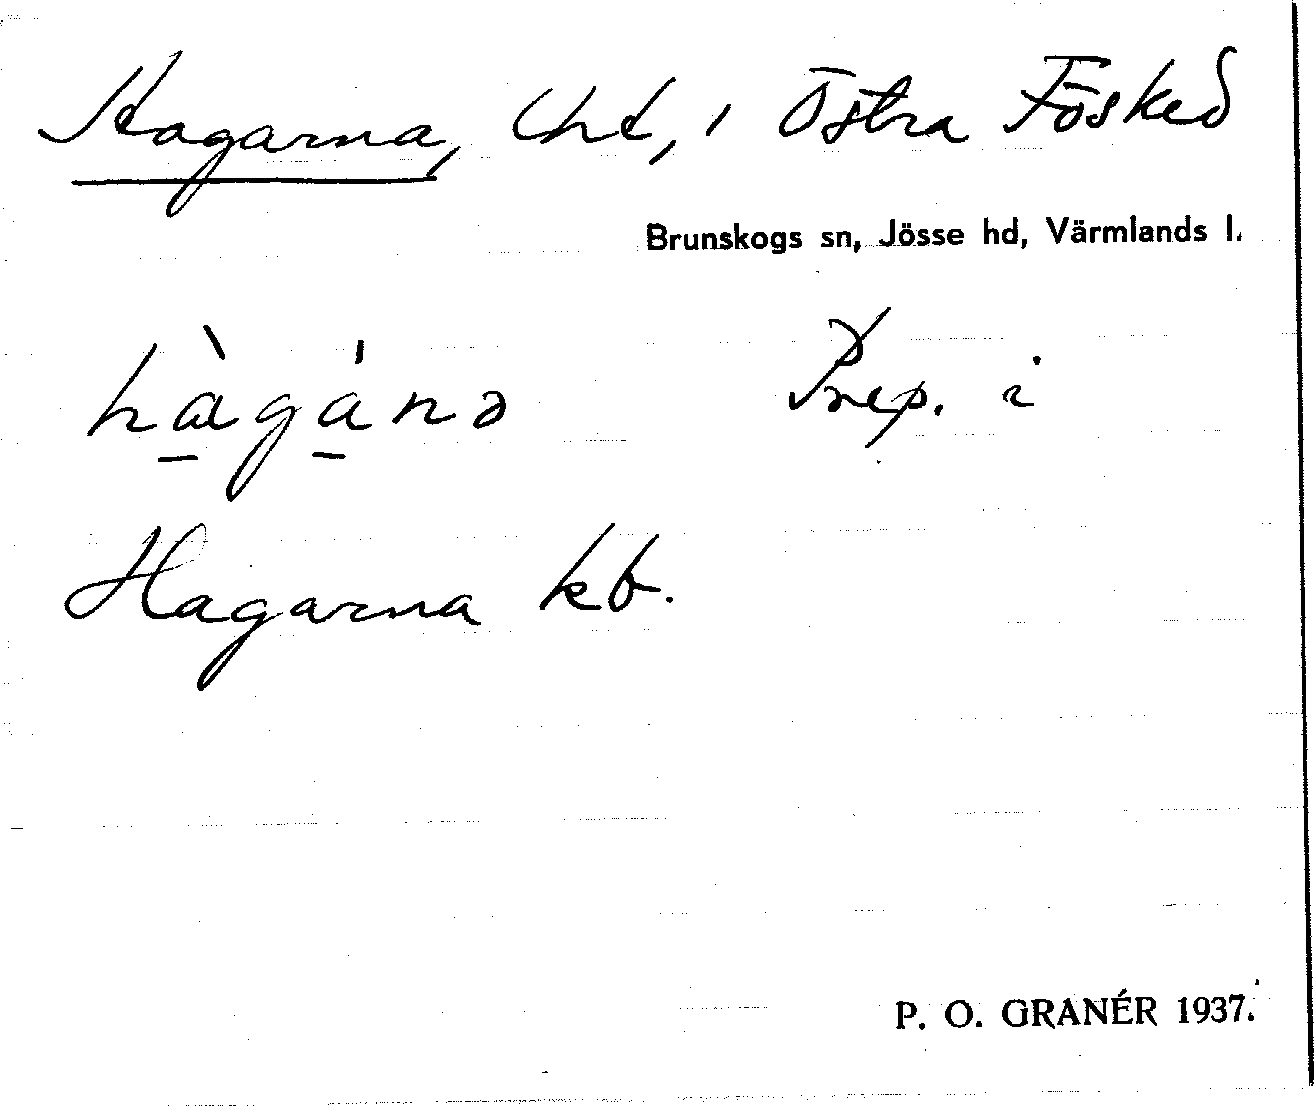 Hagarna, lht, i Östra Fösked
Brunskogs sn, Jösse hd, Värmlands l.
hàgánə Prep. i
Hagarna kb.
P. O. GRANÉR 1937.